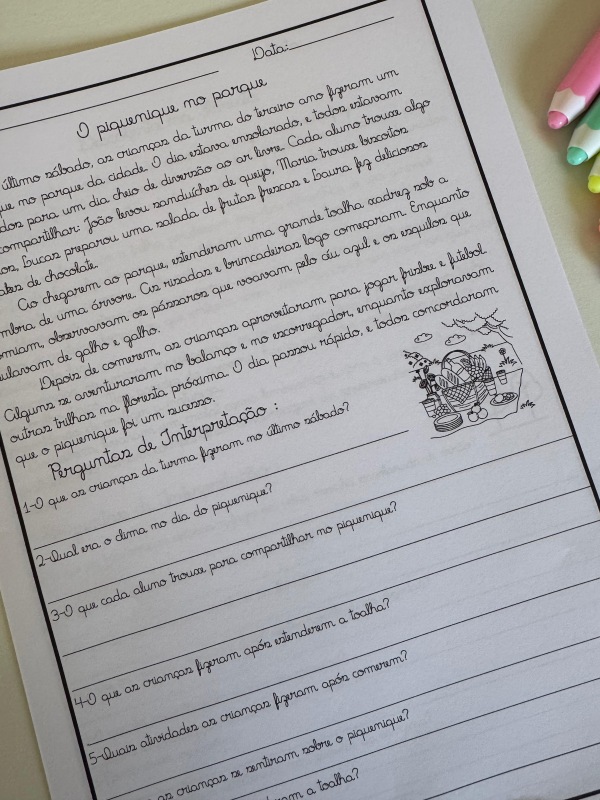 Data:
O piquenique no parque
último sábado, as crianças da turma do terceiro ano fizeram um
no parque da cidade. O dia estava ensolarado, e todos estavam
para um dia cheio de diversão ao ar livre. Cada aluno trouxe algo
compartilhar: João levou sanduíches de queijo, Maria trouxe biscoitos
Lucas preparou uma salada de frutas frescas e Laura fez deliciosos
de chocolate.
Ao chegarem ao parque, estenderam uma grande toalha xadrez sob a
de uma árvore. As risadas e brincadeiras logo começaram. Enquanto
observavam os pássaros que voavam pelo céu azul e os esquilos que
de galho e galho.
Depois de comerem, as crianças aproveitaram para jogar frisbee e futebol.
Alguns se aventuraram no balanço e no escorregador, enquanto exploravam
outras trilhas na floresta próxima. O dia passou rápido, e todos concordaram
que o piquenique foi um sucesso.
Perguntas de Interpretação :
1-O que as crianças da turma fizeram no último sábado?
2-Qual era o clima no dia do piquenique?
3-O que cada aluno trouxe para compartilhar no piquenique?
4-O que as crianças fizeram após estenderem a toalha?
5-Quais atividades as crianças fizeram após comerem?
as crianças se sentiram sobre o piquenique?
a toalha?